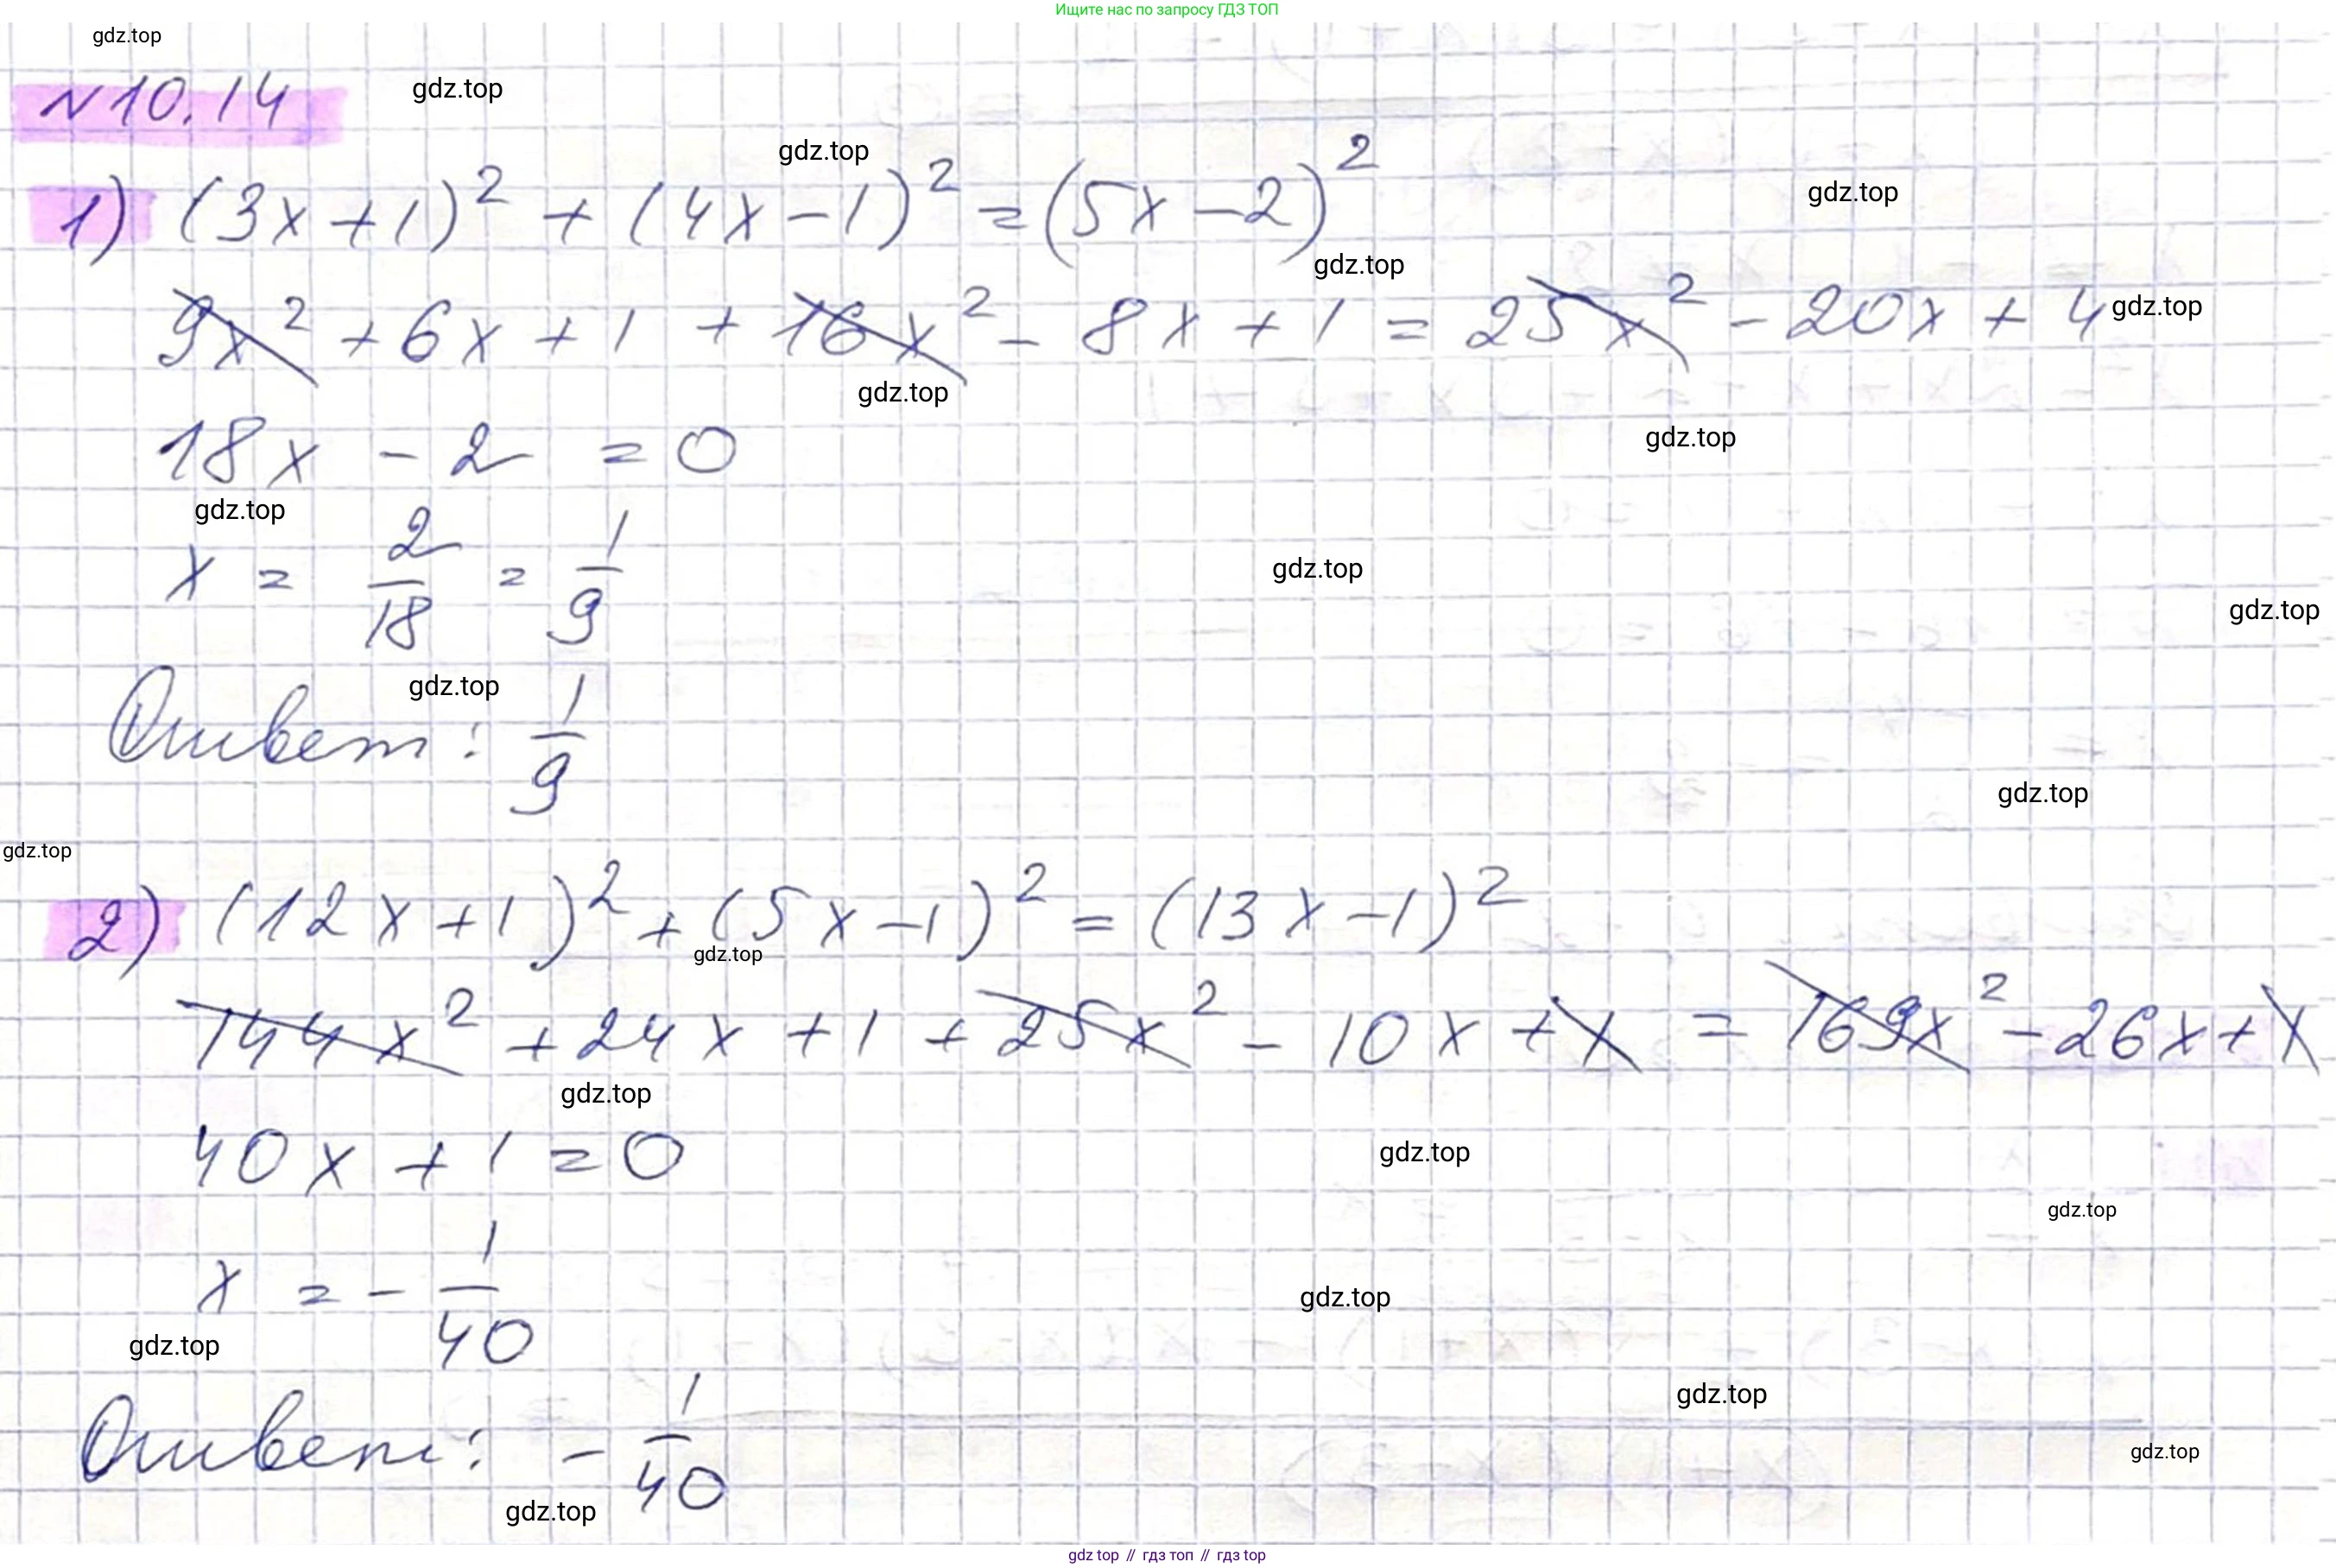 Ищите нас по запросу ГДЗ ТОП
gdz.top
№10.14
gdz.top
gdz.top
1) (3x+1)² + (4x-1)² = (5x-2)²
gdz.top
gdz.top
9x² + 6x + 1 + 16x² - 8x + 1 = 25x² - 20x + 4
gdz.top
gdz.top
gdz.top
18x - 2 = 0
gdz.top
x = 2/18 = 1/9
gdz.top
gdz.top
gdz.top
Ответ: 1/9
gdz.top
gdz.top
2) (12x+1)² + (5x-1)² = (13x-1)²
gdz.top
144x² + 24x + 1 + 25x² - 10x + 1 = 169x² - 26x + 1
gdz.top
40x + 1 = 0
gdz.top
gdz.top
x = - 1/40
gdz.top
gdz.top
gdz.top
Ответ: - 1/40
gdz.top
gdz.top
gdz top // гдз топ // гдз top